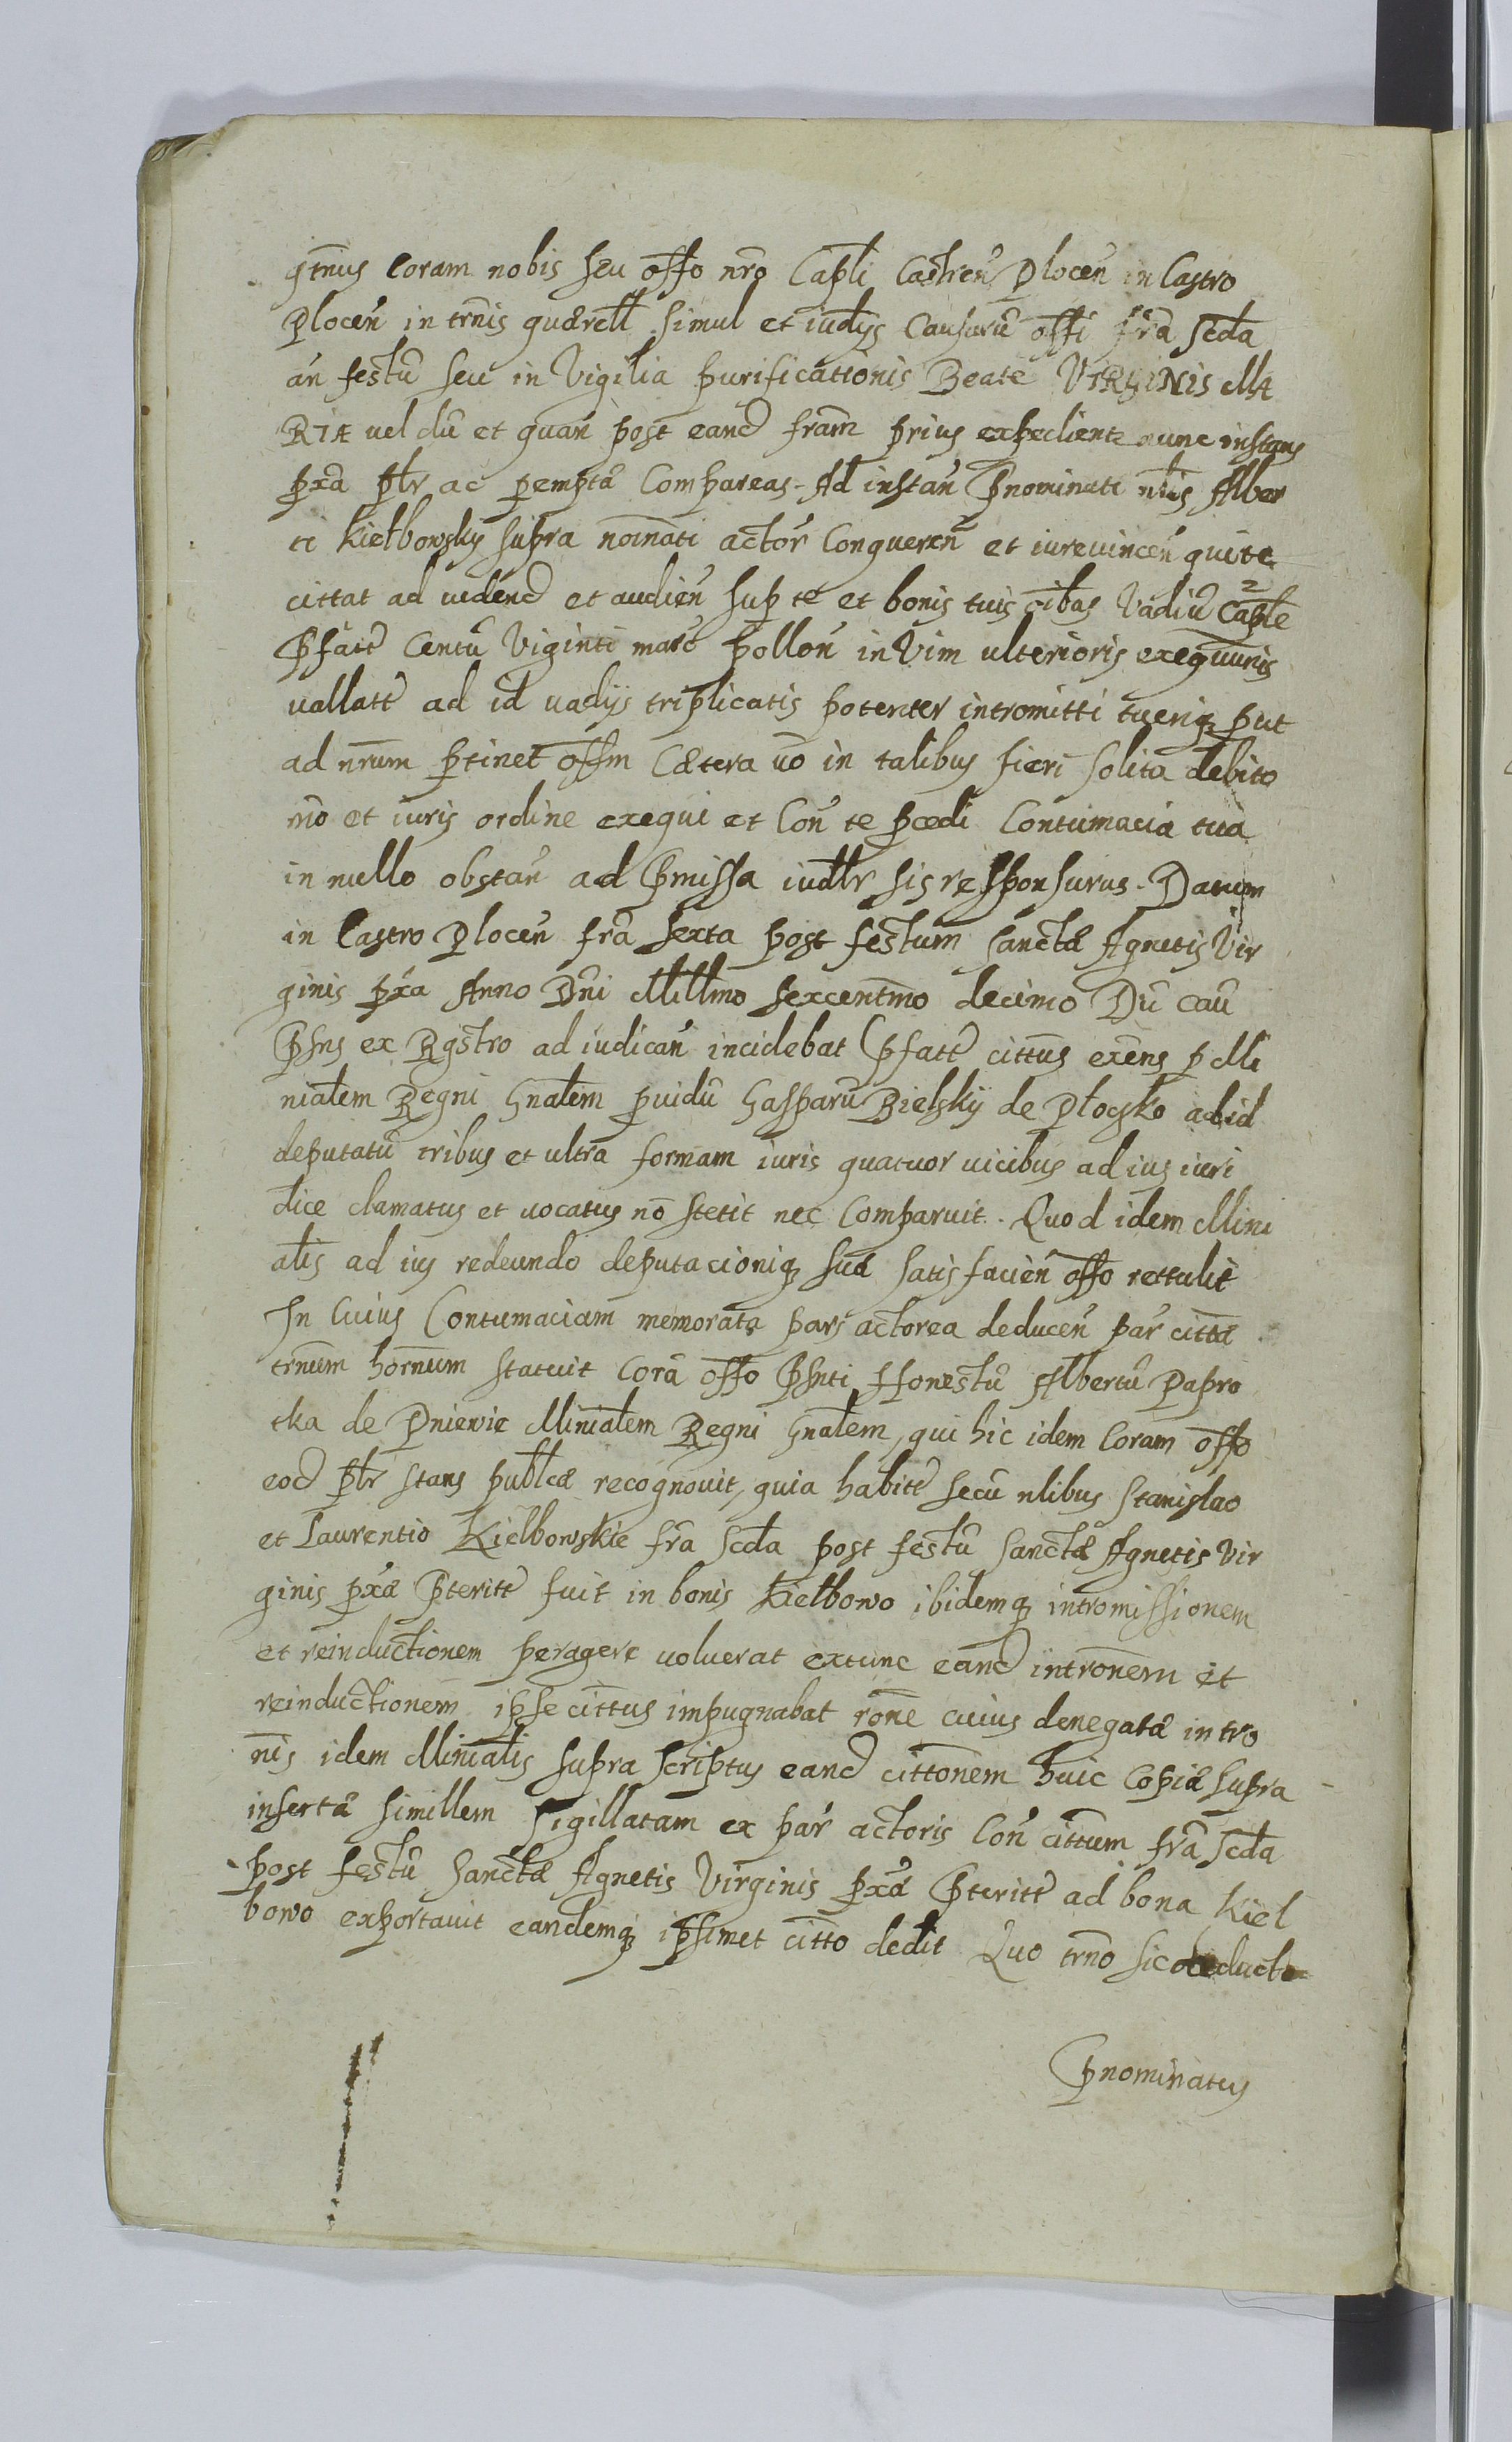 gtnus Coram nobis seu offo nro Capli Castren Plocen in Castro
Plocen in trnis quærell simul et iudijs Causaru offi fra Scda
an festu seu in Vigilia purificationis Beate VIRGINIS MA
RIÆ uel du et quan post eand fram prius expediente nunc instans
pxa pltr ac pempta Compareas. Ad instan Pnominati nlis Alber
ti Kiełbowsky supra noinati actor Conqueren et iureuincen qui te
cittat ad uidend et audien sup te et bonis tuis oibus Vadiu Caple
Pfatt Centu Viginti marc pollon in Vim ulterioris exequunis
uallatt ad id uadijs triplicatis potenter intromitti tueriq put
ad nrum ptinet offm Cætera uo in talibus fieri solita debito
mo et iuris ordine exequi et Con te pcedi Contumacia tua
in nullo obstan ad Pmissa iudltr sis responsurus. Datum
in Castro Plocen fra sexta post festum Sanctæ Agnetis Vir
ginis pxa Anno Dni Millmo sexcentmo decimo Du cau
Psns ex Rgstro ad iudican incidebat Pfatt cittus exens p Mi
nialem Regni Gnalem puidu Gasparu Bielskij de Płocsko ad id
deputatu tribus et ultra formam iuris quatuor uicibus ad ius iuri
dice clamatus et uocatus no stetit nec Comparuit. Quod idem Mini
alis ad ius redeundo deputacioniq suæ satisfacien offo rettulit
In Cuius Contumaciam memorata pars actorea deducen par citta
trnum hornum statuit Cora offo Psnti Honestu Albertu Papro
tka de Pniewie Minialem Regni Gnalem, qui hic idem Coram offo
eod pltr stans publcæ recognouit, quia habitt secu nlibus Stanislao
et Laurentio Kiełbowskie fra Scda post festu Sanctæ Agnetis Vir
ginis pxæ Pteritt fuit in bonis Kiełbowo ibidemq intromissionem
et reinductionem peragere uoluerat extunc eand intronem et
reinductionem ipse cittus impugnabat rone cuius denegatæ intro
nis idem Minialis supra scriptus eand cittonem huic Copiæ supra
insertæ simillem sigillatam ex par actoris Con cittum fra Scda
post festu Sanctæ Agnetis Virginis pxæ Pteritt ad bona Kieł
bowo exportauit eandemq ipsimet citto dedit Quo trno sic deducto
Pnominatus